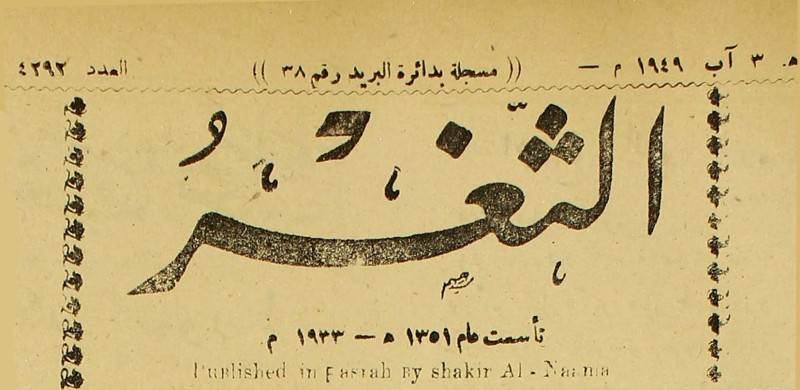 ه. ٣ آب ١٩٤٩ م — (( مسجلة بدائرة البريد رقم ٣٨ )) العدد ٤٢٩٢
الثغر
تأسست عام ١٣٥١ ه — ١٩٣٣ م
Published in Basrah By shakir Al - Naama